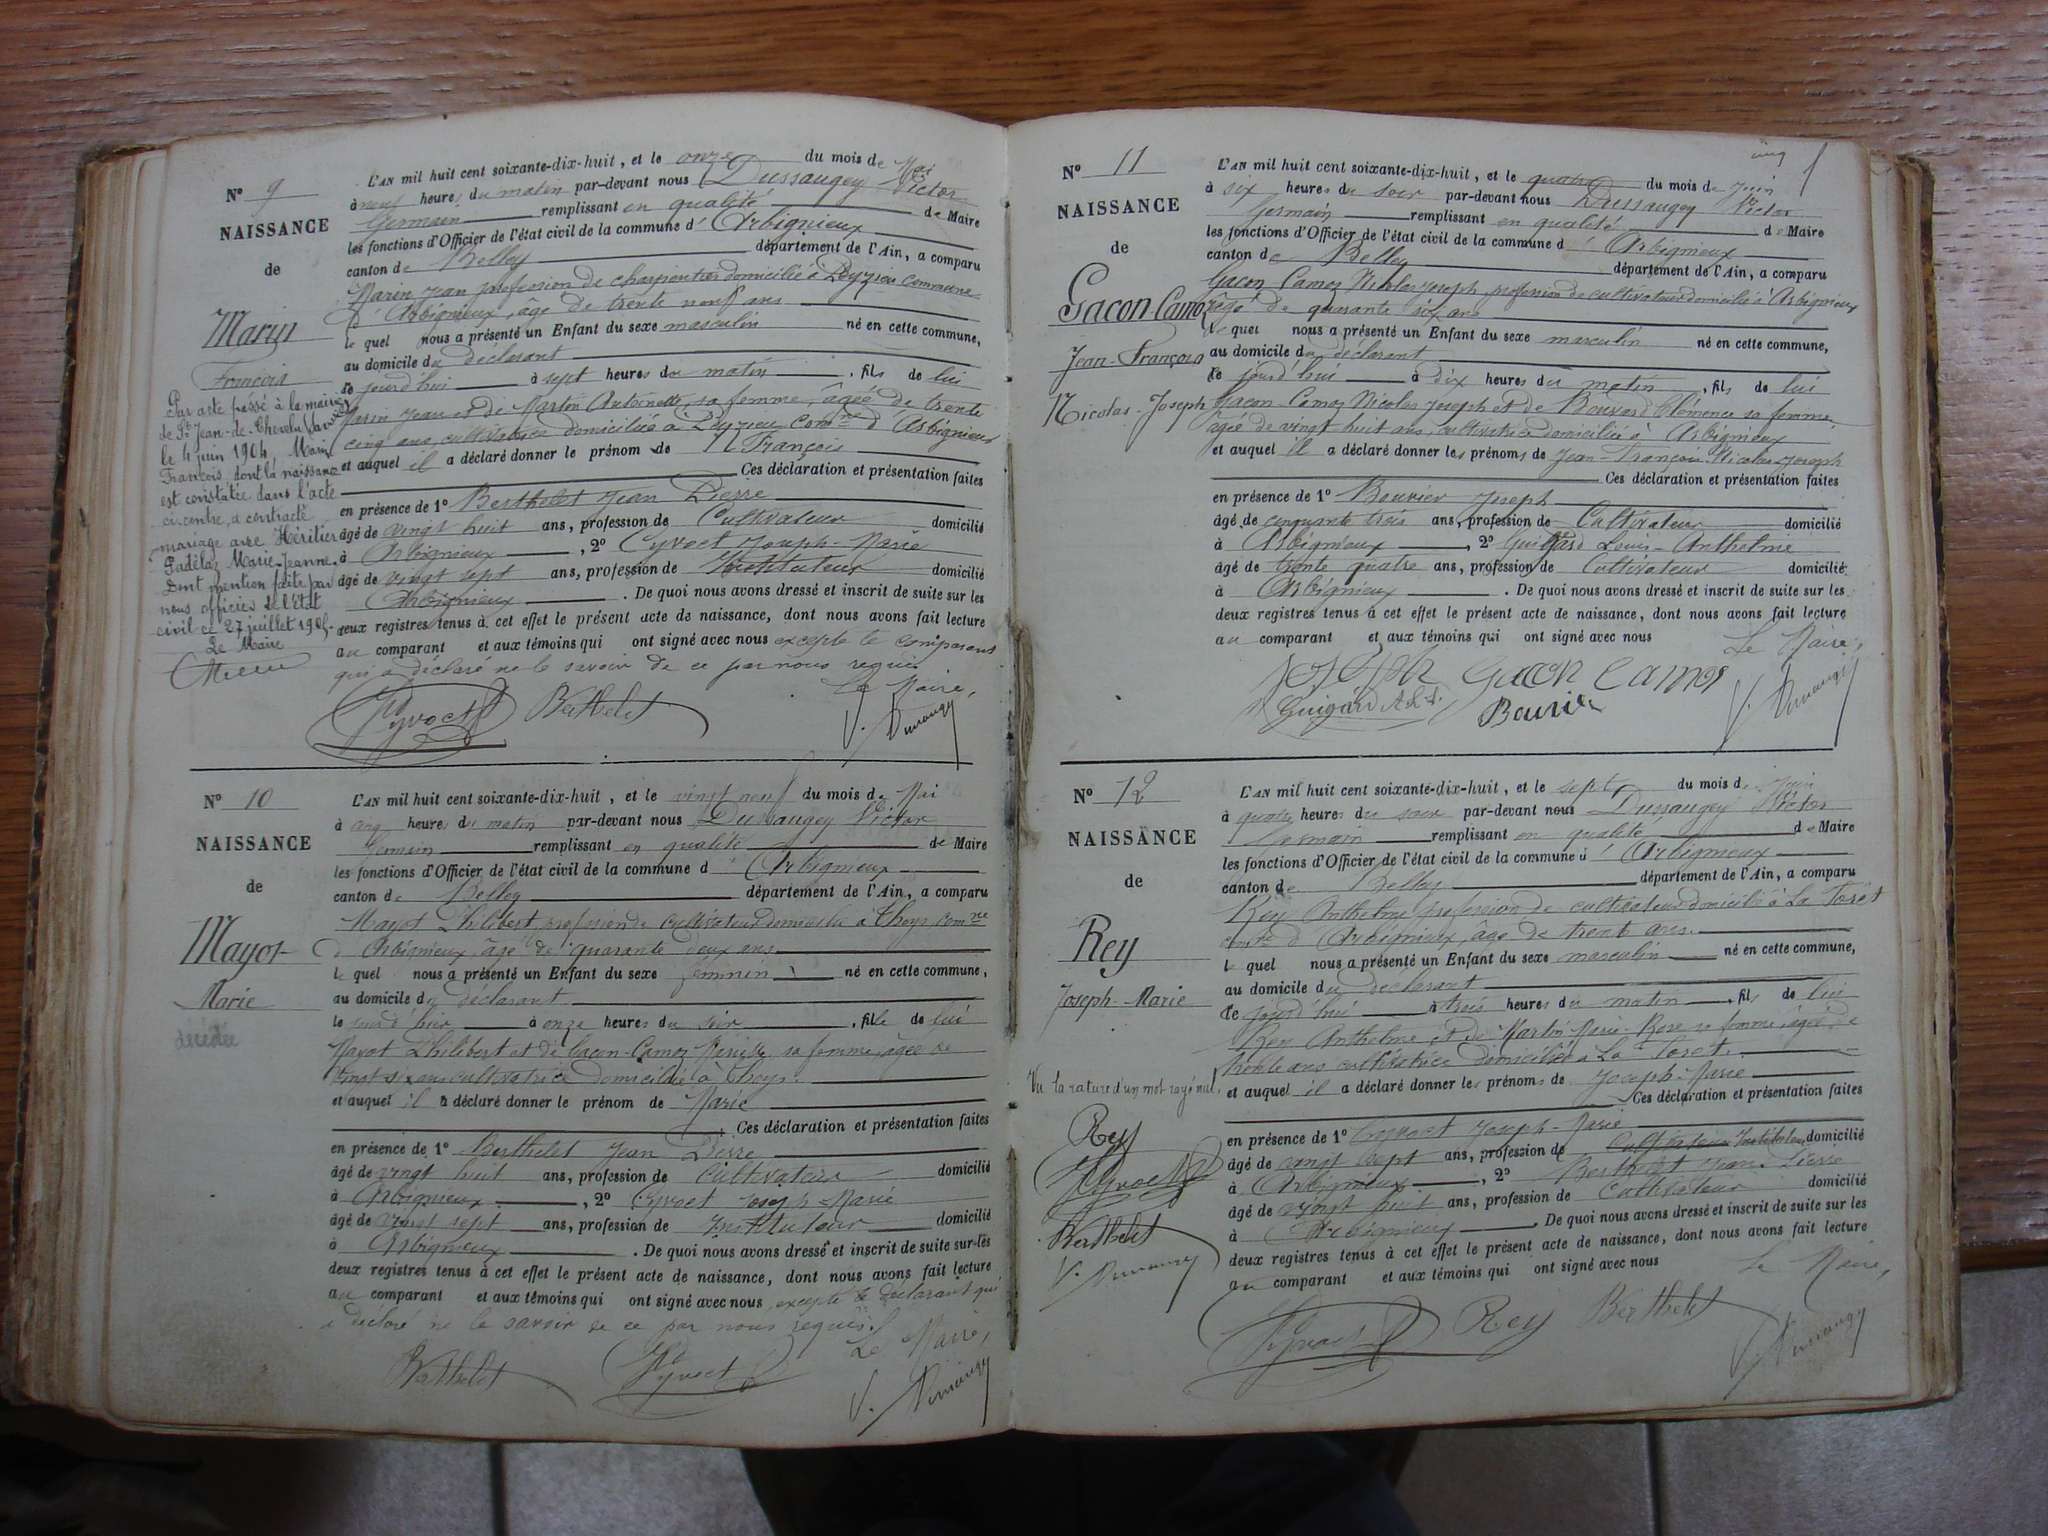 N° 9
NAISSANCE
de
Marin
François
Par acte passé à la mairie
de St Jean-de-Chevelu (Savoie)
le 4 juin 1904, Marin
François, dont la naissance
est constatée dans l'acte
ci-contre, a contracté
mariage avec Héritier
Padélaz Marie-Jeanne.
Dont mention faite par
nous officier de l'état
civil ce 27 juillet 1905.
Le Maire
L'AN mil huit cent soixante-dix-huit, et le onze du mois de Mai
à neuf heures du matin par-devant nous Dussaugey Victor
Germain remplissant en qualité de Maire
les fonctions d'Officier de l'état civil de la commune d'Arbignieux
canton de Belley département de l'Ain, a comparu
Marin Jean profession de charpentier domicilié à Peyzieu commune
d'Arbignieux, âgé de trente neuf ans
lequel nous a présenté un Enfant du sexe masculin né en cette commune,
au domicile du déclarant
ce jourd'hui à sept heures du matin, fils de lui
Marin Jean et de Martin Antoinette, sa femme, âgée de trente
cinq ans, cultivatrice domiciliée à Peyzieu Comne d'Arbignieux
et auquel il a déclaré donner le prénom de François
Ces déclaration et présentation faites
en présence de 1° Berthelet Jean Pierre
âgé de vingt huit ans, profession de Cultivateur domicilié
à Arbignieux, 2° Cyvoct Joseph-Marie
âgé de vingt sept ans, profession de Instituteur domicilié
Arbignieux. De quoi nous avons dressé et inscrit de suite sur les
deux registres tenus à cet effet le présent acte de naissance, dont nous avons fait lecture
au comparant et aux témoins qui ont signé avec nous excepté le comparant
qui a déclaré ne le savoir de ce par nous requis.
Le Maire,
Cyvoct Berthelet
N° 10
NAISSANCE
de
Mayot
Marie
décédée
L'AN mil huit cent soixante-dix-huit, et le vingt neuf du mois de Mai
à cinq heures du matin par-devant nous Dussaugey Victor
Germain remplissant en qualité de Maire
les fonctions d'Officier de l'état civil de la commune d'Arbignieux
canton de Belley département de l'Ain, a comparu
Mayot Philibert, profession de cultivateur domicilié à Thoys Comne
d'Arbignieux, âgé de quarante deux ans
lequel nous a présenté un Enfant du sexe féminin né en cette commune,
au domicile du déclarant
le jour d'hier à onze heures du soir, fille de lui
Mayot Philibert et de Gacon-Camoz Mariette, sa femme, âgée de
vingt six ans cultivatrice domiciliée à Thoys.
et auquel il a déclaré donner le prénom de Marie
Ces déclaration et présentation faites
en présence de 1° Berthelet Jean Pierre
âgé de vingt huit ans, profession de Cultivateur domicilié
à Arbignieux, 2° Cyvoct Joseph-Marie
âgé de vingt sept ans, profession de Instituteur domicilié
à Arbignieux. De quoi nous avons dressé et inscrit de suite sur les
deux registres tenus à cet effet le présent acte de naissance, dont nous avons fait lecture
au comparant et aux témoins qui ont signé avec nous excepté le déclarant qui
a déclaré ne le savoir de ce par nous requis.
Le Maire,
Berthelet Cyvoct
N° 11
NAISSANCE
de
Gacon-Camoz
Jean-François
Nicolas-Joseph
cinq
L'AN mil huit cent soixante-dix-huit, et le quatre du mois de Juin
à six heures du soir par-devant nous Dussaugey Victor
Germain remplissant en qualité de Maire
les fonctions d'Officier de l'état civil de la commune d'Arbignieux
canton de Belley département de l'Ain, a comparu
Gacon Camoz Nicolas Joseph, profession de cultivateur domicilié à Arbignieux
âgé de quarante six ans
lequel nous a présenté un Enfant du sexe masculin né en cette commune,
au domicile du déclarant
ce jourd'hui à dix heures du matin, fils de lui
Gacon-Camoz Nicolas Joseph et de Bouvard Clémence sa femme,
âgée de vingt huit ans, cultivatrice domiciliée à Arbignieux
et auquel il a déclaré donner les prénoms de Jean-François-Nicolas-Joseph
Ces déclaration et présentation faites
en présence de 1° Bouvier Joseph
âgé de cinquante trois ans, profession de Cultivateur domicilié
à Arbignieux, 2° Guigard Louis-Anthelme
âgé de trente quatre ans, profession de Cultivateur domicilié
à Arbignieux. De quoi nous avons dressé et inscrit de suite sur les
deux registres tenus à cet effet le présent acte de naissance, dont nous avons fait lecture
au comparant et aux témoins qui ont signé avec nous
Le Maire,
Joseph Gacon Camos
Guigard Bouvier
N° 12
NAISSANCE
de
Rey
Joseph-Marie
Vu la rature d'un mot rayé nul.
Rey
Cyvoct
Berthelet
L'AN mil huit cent soixante-dix-huit, et le sept du mois de Juin
à quatre heures du soir par-devant nous Dussaugey Victor
Germain remplissant en qualité de Maire
les fonctions d'Officier de l'état civil de la commune d'Arbignieux
canton de Belley département de l'Ain, a comparu
Rey Anthelme profession de cultivateur domicilié à La Forêt
comne d'Arbignieux, âgé de trente ans.
lequel nous a présenté un Enfant du sexe masculin né en cette commune,
au domicile du déclarant
ce jourd'hui à trois heures du matin, fils de lui
Rey Anthelme et de Martin Marie-Rose sa femme, âgée de
trente ans cultivatrice domiciliée à La Forêt.
et auquel il a déclaré donner les prénoms de Joseph-Marie
Ces déclaration et présentation faites
en présence de 1° Cyvoct Joseph-Marie
âgé de vingt sept ans, profession de cultivateur Instituteur domicilié
à Arbignieux, 2° Berthelet Jean-Pierre
âgé de vingt huit ans, profession de Cultivateur domicilié
à Arbignieux. De quoi nous avons dressé et inscrit de suite sur les
deux registres tenus à cet effet le présent acte de naissance, dont nous avons fait lecture
au comparant et aux témoins qui ont signé avec nous
Le Maire,
Cyvoct Rey Berthelet